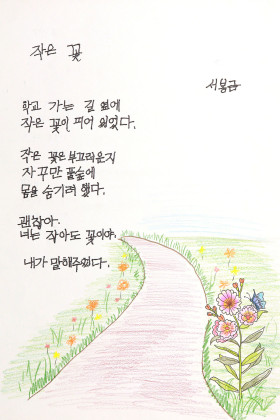 작은 꽃
서봉금
학교 가는 길 옆에
작은 꽃이 피어 있었다.
작은 꽃은 부끄러운지
자꾸만 풀숲에
몸을 숨기려 했다.
괜찮아.
너는 작아도 꽃이야.
내가 말해주었다.